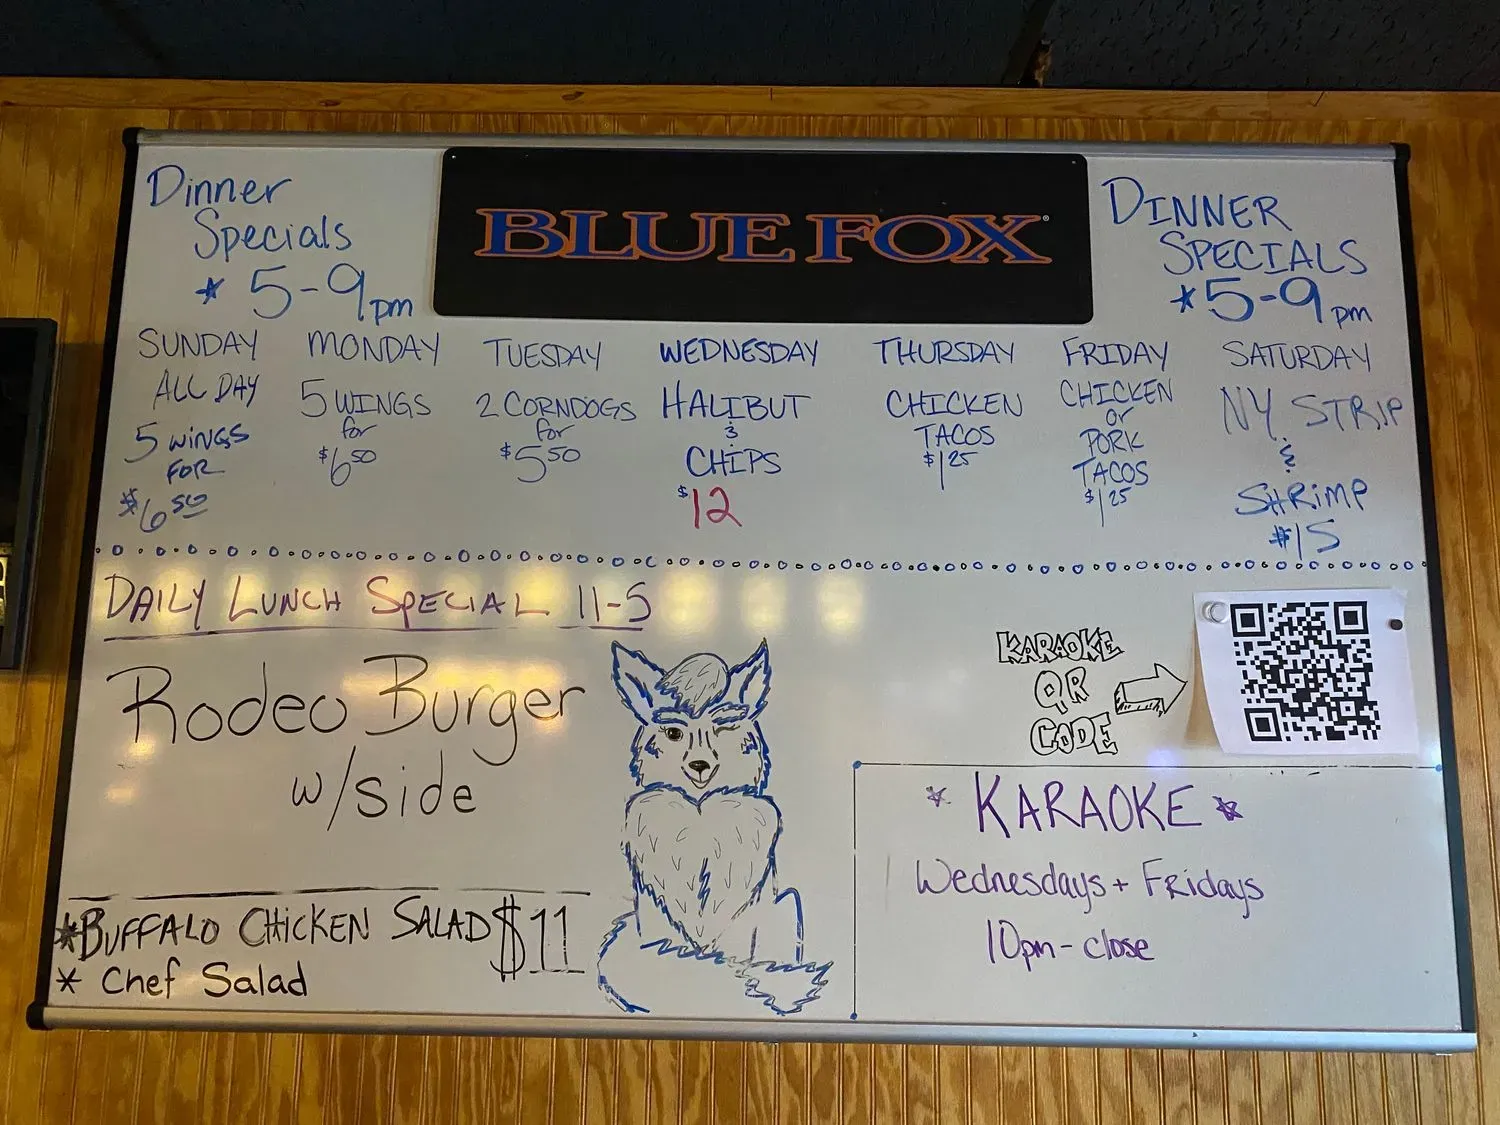 Dinner
Specials
* 5-9pm
BLUE FOX
DINNER
SPECIALS
* 5-9pm
SUNDAY
ALL DAY
5 WINGS
FOR
$6 50
MONDAY
5 WINGS
for
$6 50
TUESDAY
2 CORNDOGS
for
$5 50
WEDNESDAY
HALIBUT
&
CHIPS
$12
THURSDAY
CHICKEN
TACOS
$1 25
FRIDAY
CHICKEN
or
PORK
TACOS
$1 25
SATURDAY
NY STRIP
&
SHRIMP
$15
DAILY LUNCH SPECIAL 11-5
Rodeo Burger
w/side
*BUFFALO CHICKEN SALAD $11
* Chef Salad
KARAOKE
QR
CODE
* KARAOKE *
Wednesdays + Fridays
10pm - close